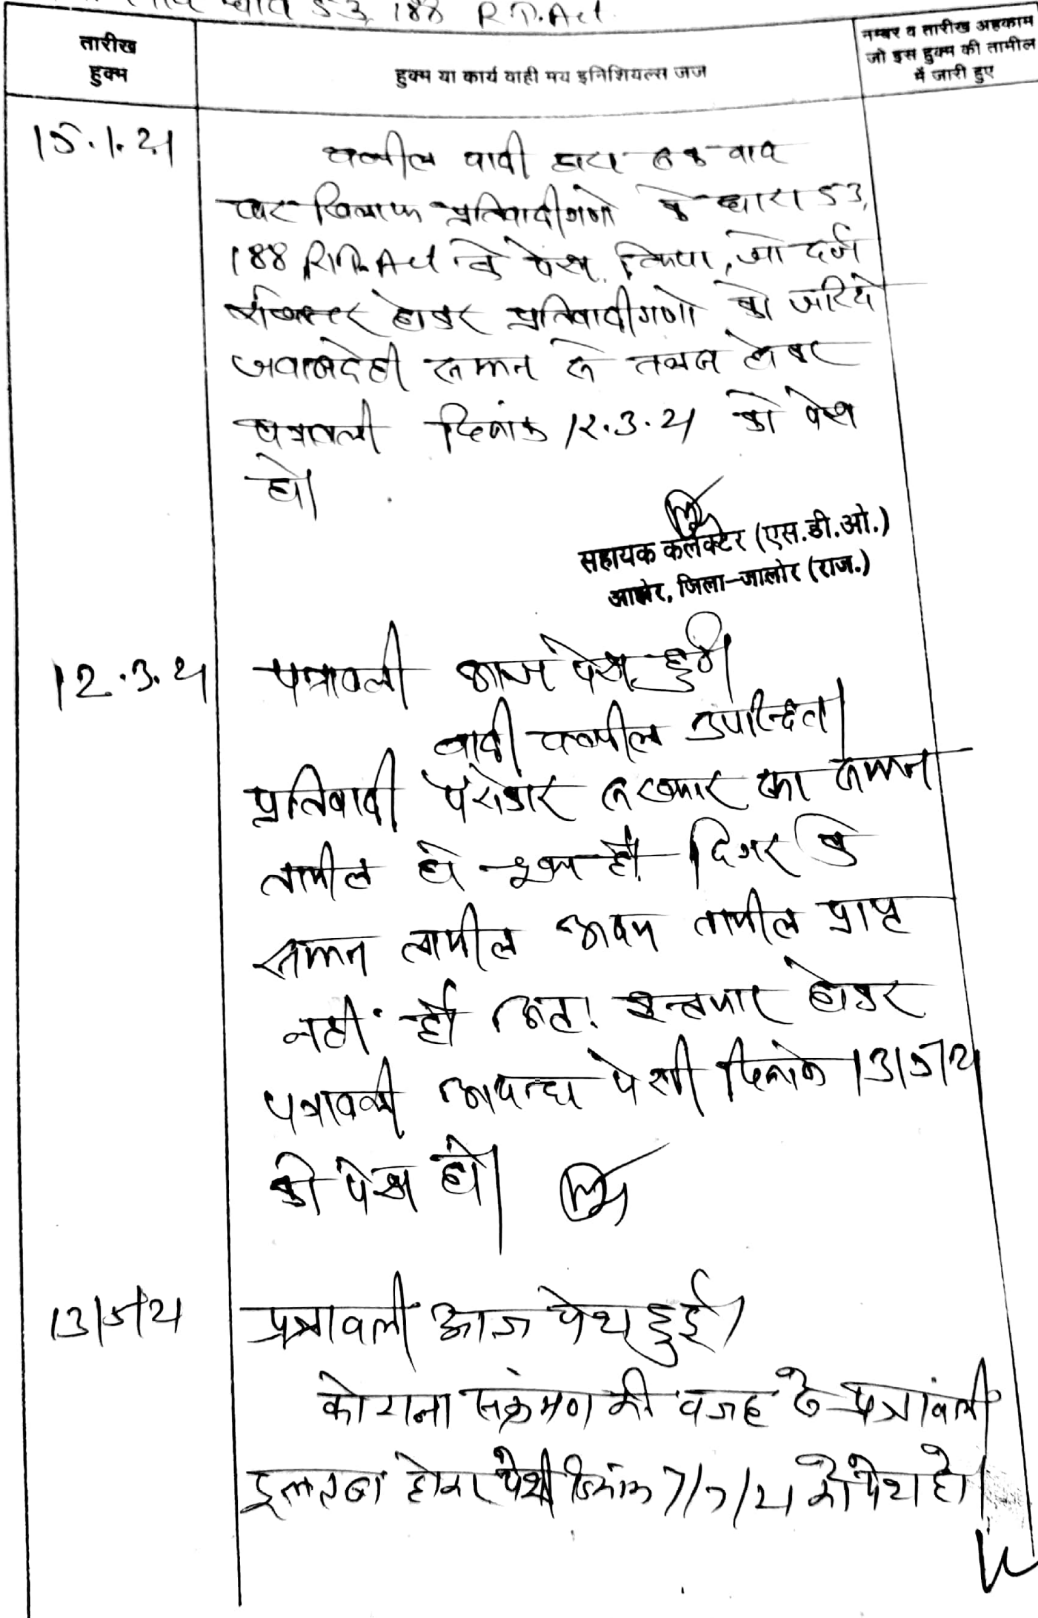 धारा 53, 188 R.T. Act
तारीख
हुक्म
हुक्म या कार्य वाही मय इनिशियल्स जज
नम्बर व तारीख अहकाम
जो इस हुक्म की तामील
में जारी हुए
15.1.21
वकील वादी द्वारा एक वाद
खिलाफ प्रतिवादीगणो के धारा 53,
188 R.T. Act के पेश किया, जो दर्ज
रजिस्टर होकर प्रतिवादीगणो को जरिये
जवाबदेही सम्मन से तलब होकर
पत्रावली दिनांक 12.3.21 को पेश
हो।
सहायक कलेक्टर (एस.डी.ओ.)
आहोर, जिला-जालोर (राज.)
12.3.21
पत्रावली आज पेश हुई।
वादी वकील उपस्थित।
प्रतिवादी पेरोकार सरकार का सम्मन
तामील हो चुका है। दिगर के
सम्मन तामील अदम तामील प्राप्त
नहीं है। अतः इन्तजार होकर
पत्रावली आयन्दा पेशी दिनांक 13/5/21
को पेश हो।
13/5/21
पत्रावली आज पेश हुई।
कोराना सक्रंमण की वजह से पत्रांवली
इल्तवा होकर पेशी दिनांक 7/7/21 को पेश हो।